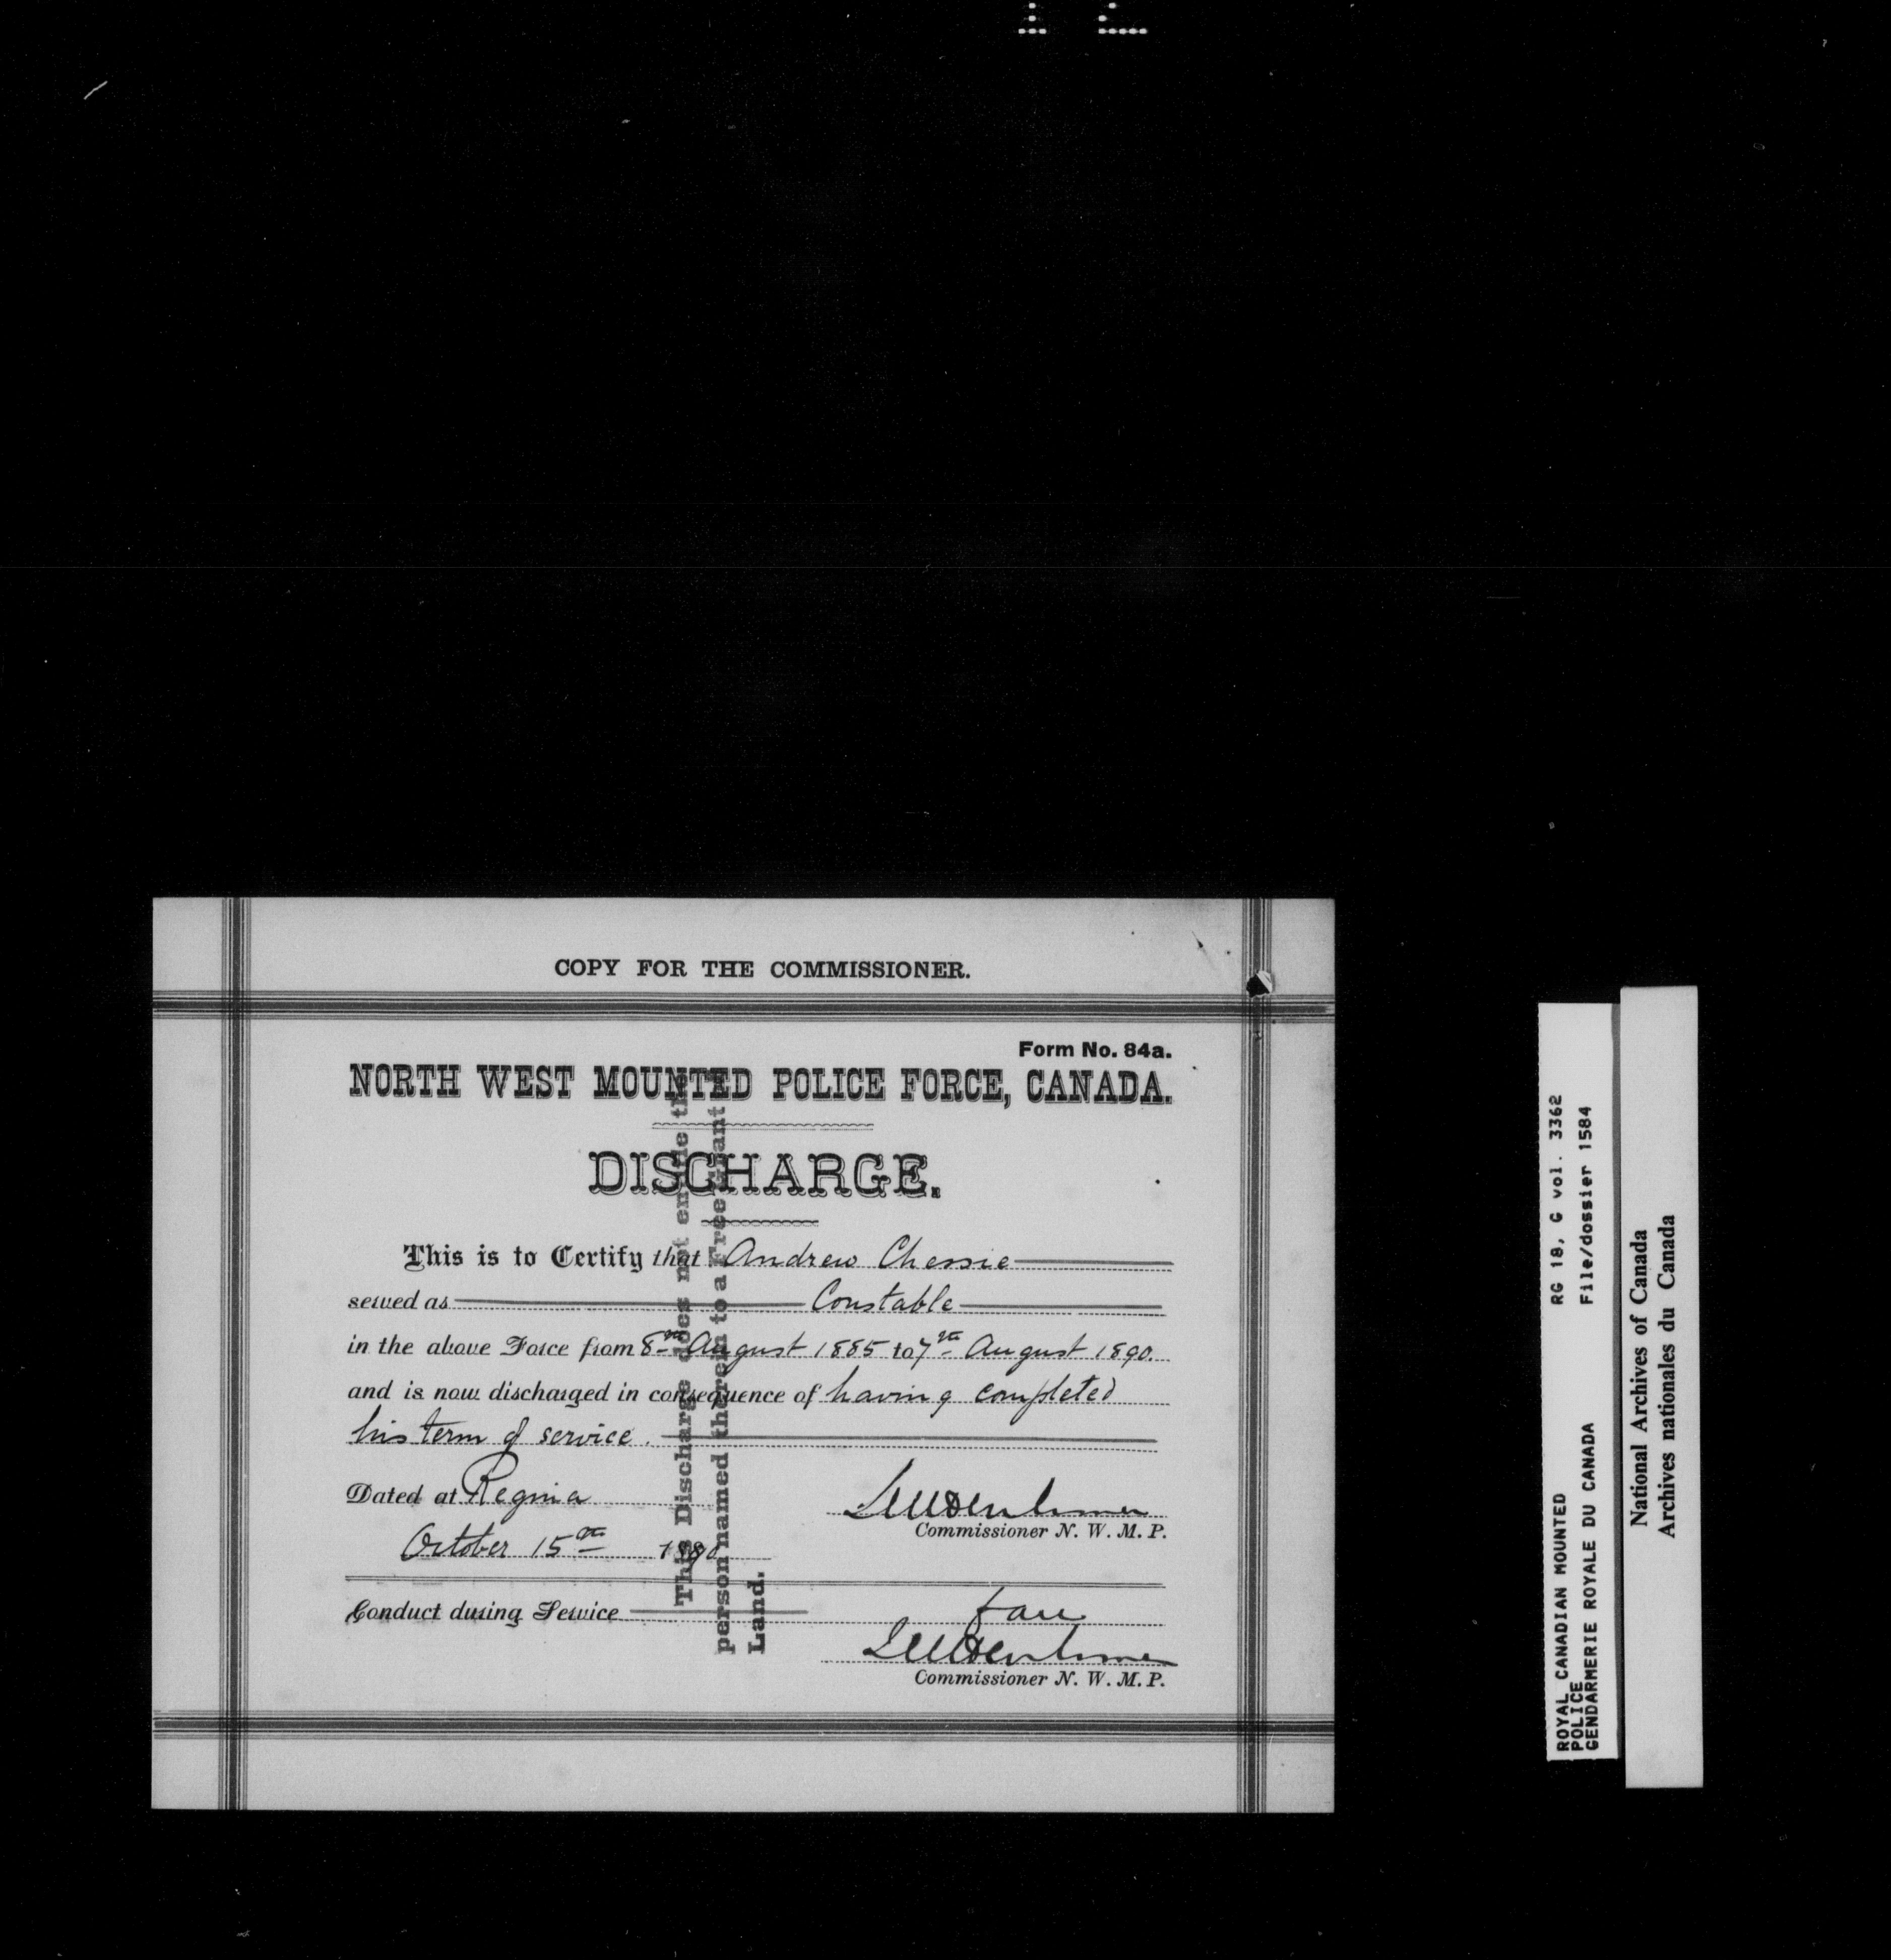 COPY FOR THE COMMISSIONER.
Form No. 84a.
NORTH WEST MOUNTED POLICE FORCE, CANADA.
DISCHARGE.
This is to Certify that Andrew Chessie
served as Constable
in the above Force from 8th August 1885 to 7th August 1890.
and is now discharged in consequence of having completed
his term of service.
Dated at Regina
October 15th 1890
Commissioner N. W. M. P.
Conduct during Service fair
Commissioner N. W. M. P.
This Discharge does not entitle the
person named therein to a Free Grant
Land.
ROYAL CANADIAN MOUNTED RG 18, G vol. 3362
POLICE
GENDARMERIE ROYALE DU CANADA File/dossier 1584
National Archives of Canada
Archives nationales du Canada